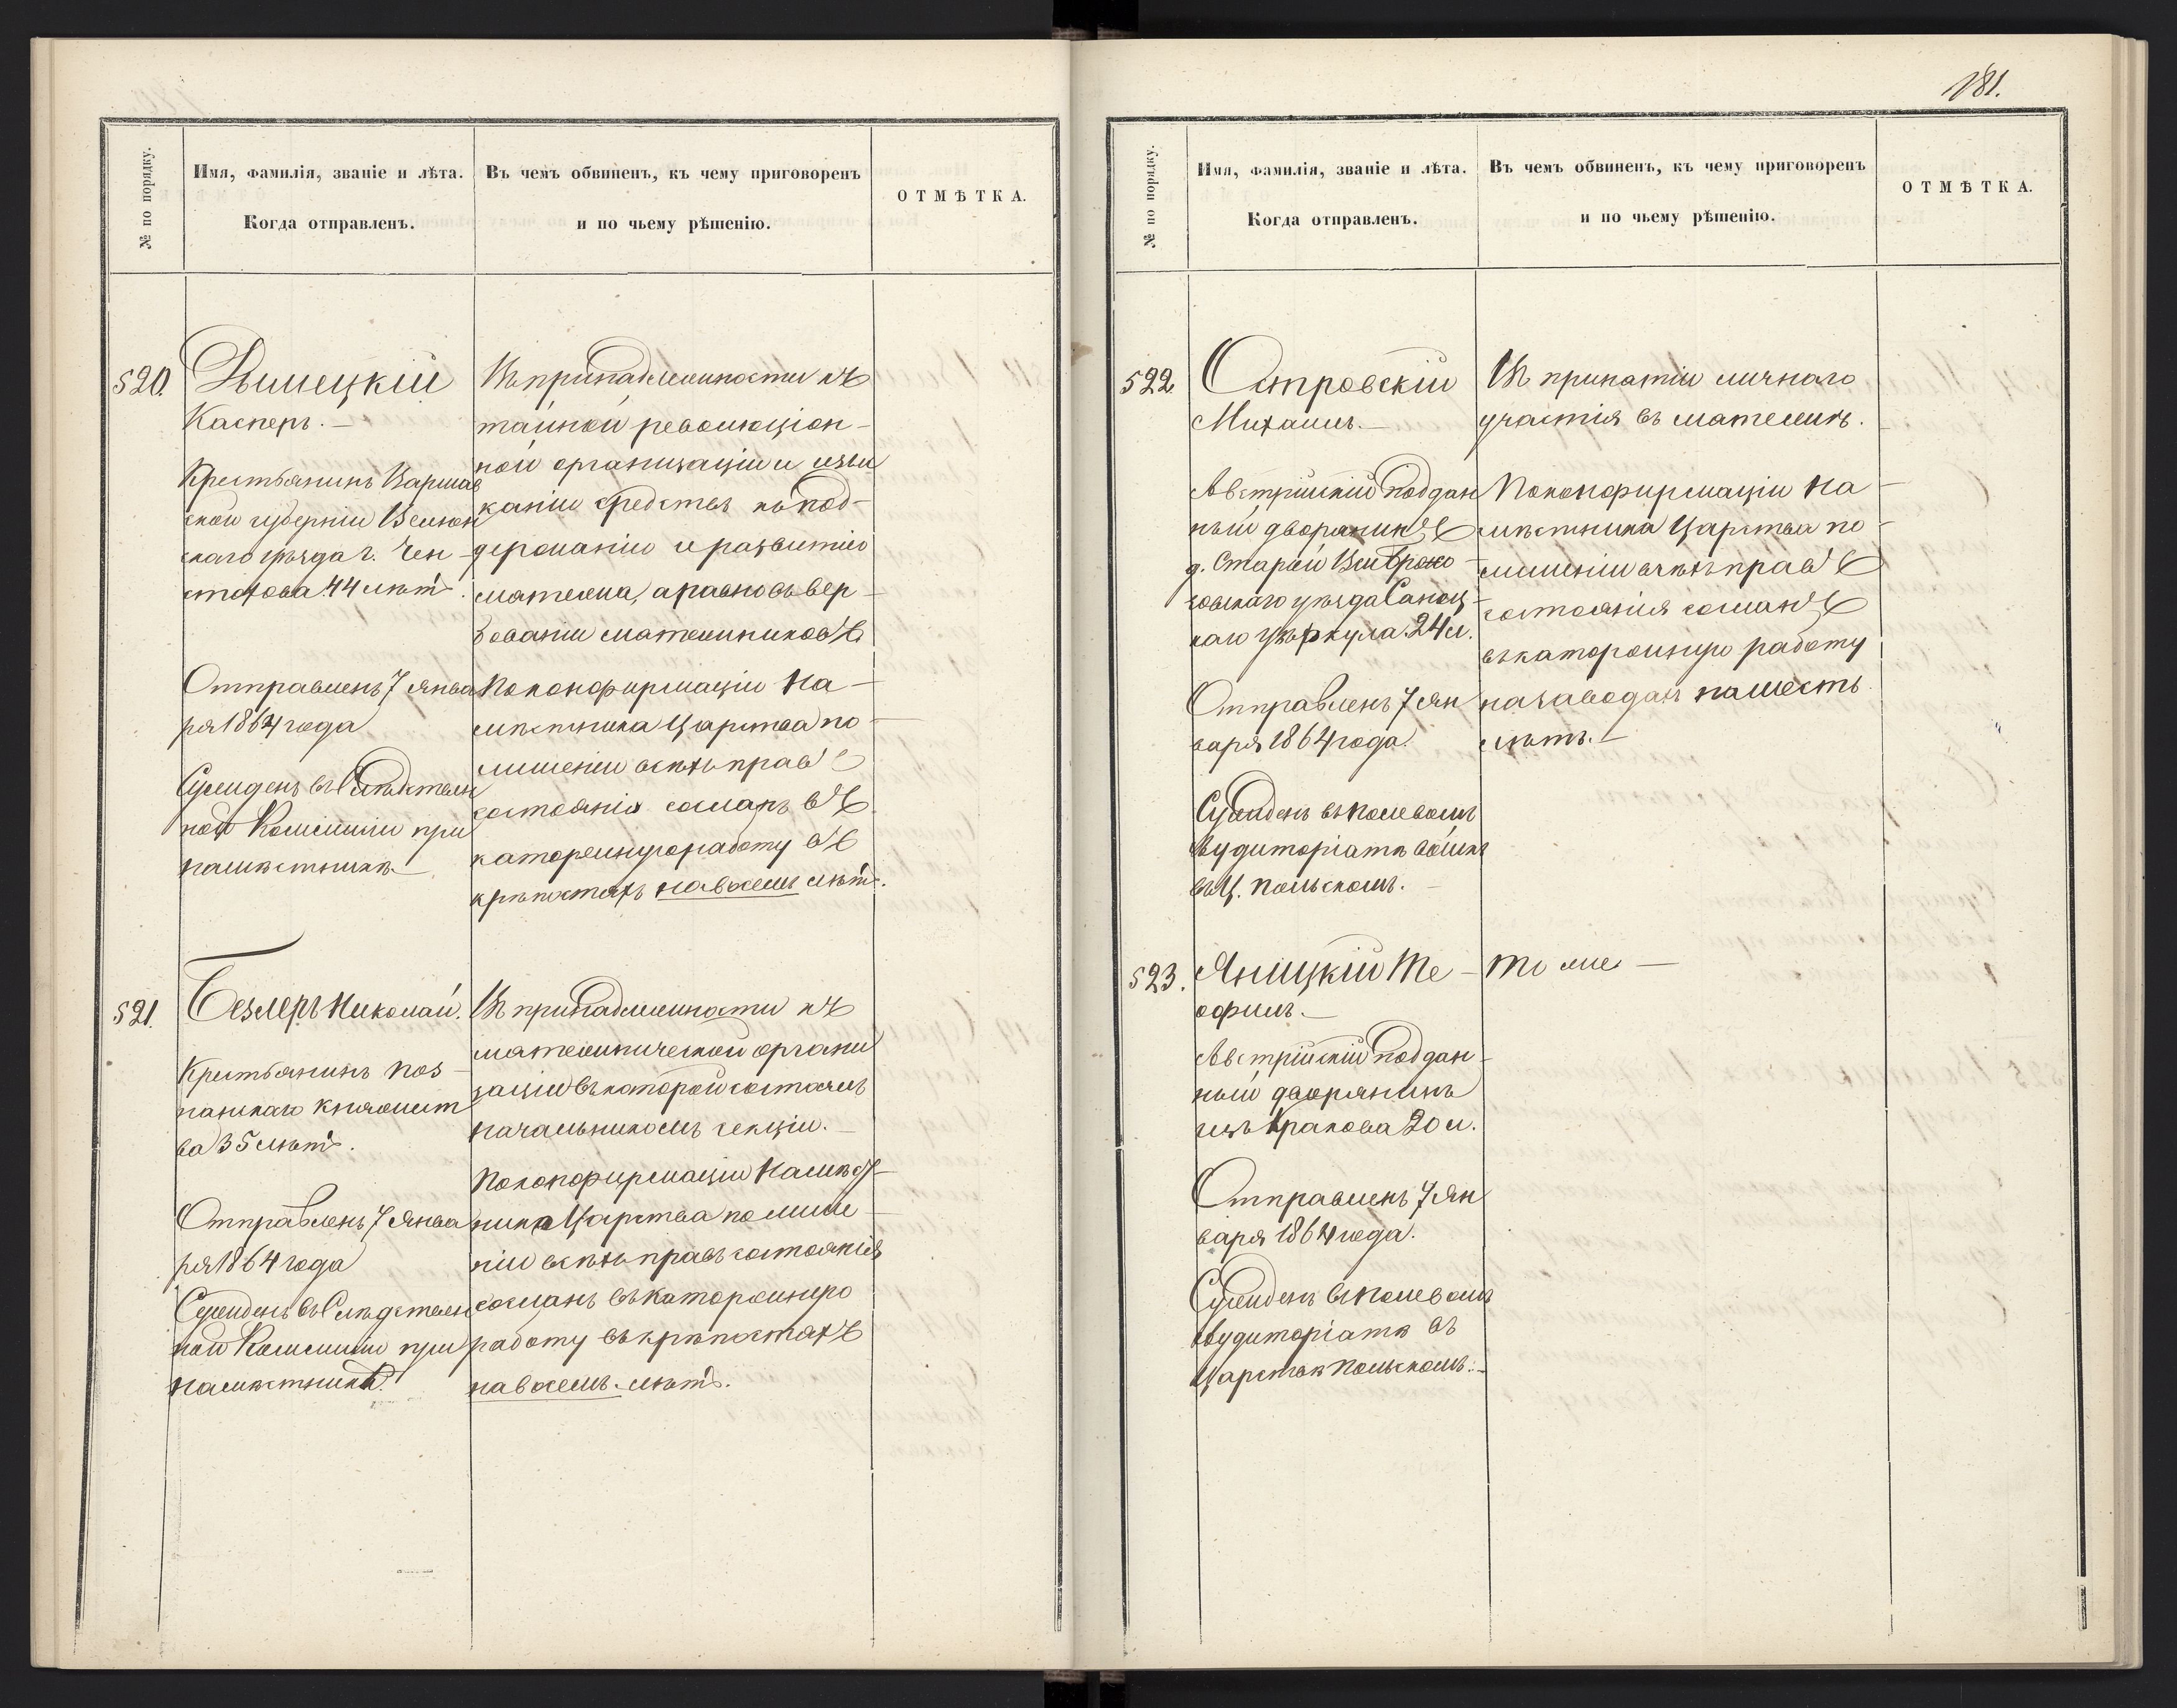 181.
№ по порядку.
Имя, фамилія, званіе и лѣта.
Когда отправленъ.
Въ чемъ обвиненъ, къ чему приговоренъ
и по чьему рѣшенію.
ОТМѢТКА.
520.
Касперъ. —
Крестьянинъ Варшав
ской губерніи Велюн
скаго уѣзда г. Чен-
стохова 44 лѣтъ.
Отправленъ 7 янва
ря 1864 года
Сужденъ въ Слѣдствен
ной Коммисіи при
намѣстникѣ —
Въ принадлежности къ
тайной революціон-
ной организаціи и изы
сканіи средствъ къ под-
держанію и развитію
мятежа, а равно въ вер-
бованіи мятежниковъ
По конфирмаціи На-
мѣстника Царства по
лишеніи всѣхъ правъ
состоянія сосланъ въ
каторжную работу въ
крѣпостяхъ на восемь лѣтъ.
521.
Безлеръ Николай.
Крестьянинъ Поз-
нанскаго Княжест
ва 35 лѣтъ.
Отправленъ 7 Янва
ря 1864 года
Сужденъ въ Слѣдствен
ной Коммисіи при
намѣстникѣ.
Въ принадлежности къ
мятежнической органи
заціи въ которой состоялъ
начальникомъ секціи. —
По конфирмаціи Намѣст-
ника Царства по лише-
ніи всѣхъ правъ состоянія
сосланъ въ каторжную
работу въ крѣпостяхъ
на восемь лѣтъ.
№ по порядку.
Имя, фамилія, званіе и лѣта.
Когда отправленъ.
Въ чемъ обвиненъ, къ чему приговоренъ
и по чьему рѣшенію.
ОТМѢТКА.
522
Островскій
Михаилъ. —
Австрійскій поддан
ный дворянинъ
д. Старой
уѣзда Саноц-
каго циркула. 24 л.
Отправленъ 7 Ян
варя 1864 года.
Сужденъ въ полевомъ
Аудиторіатѣ войскъ
въ Ц. Польскомъ. —
Въ принятіи личнаго
участія въ мятежѣ.
По конфирмаціи На-
мѣстника Царства по-
лишеніи всѣхъ правъ
состоянія сосланъ
въ каторжную работу
на заводахъ на шесть
лѣтъ. —
523.
Яницкій Те-
офилъ. —
Австрійскій поддан-
ный дворянинъ
изъ Кракова 20 л.
Отправленъ 7 Ян
варя 1864 года.
Сужденъ въ полевомъ
Аудиторіатѣ въ
Царствѣ Польскомъ. —
То же —